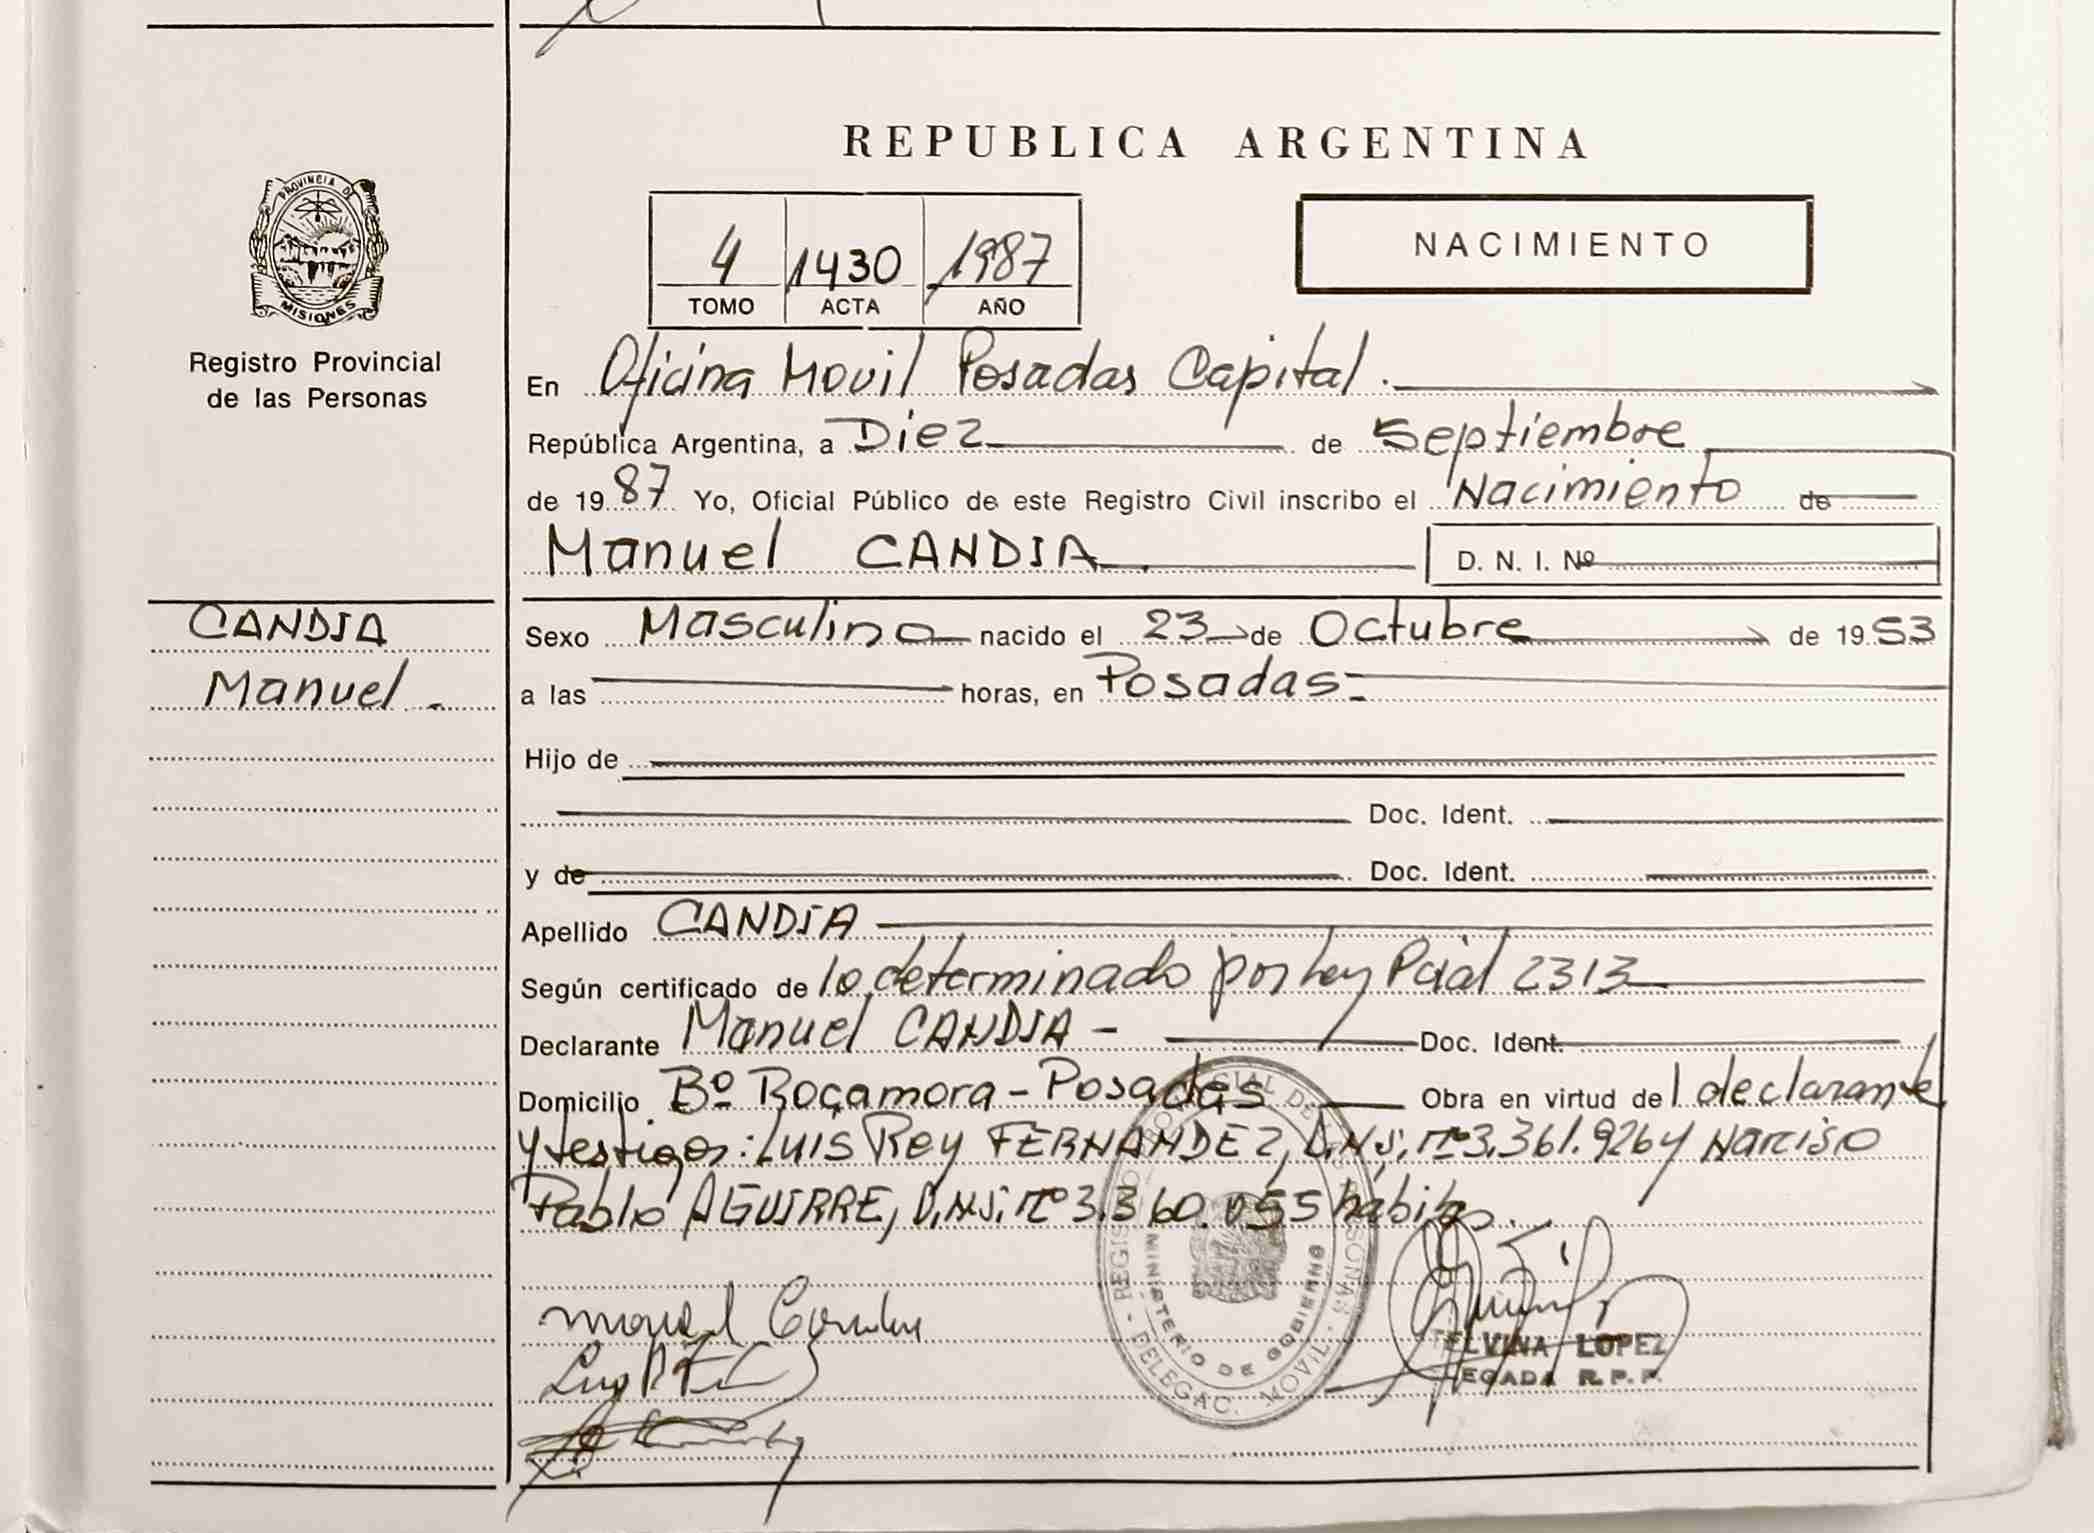 REPUBLICA ARGENTINA
PROVINCIA DE
MISIONES
Registro Provincial
de las Personas
4 1430 1987
TOMO ACTA AÑO
NACIMIENTO
En Oficina Movil Posadas Capital.
República Argentina, a Diez de Septiembre
de 1987 Yo, Oficial Público de este Registro Civil inscribo el Nacimiento de
Manuel CANDIA D. N. I. Nº
CANDIA
Manuel.
Sexo Masculino nacido el 23 de Octubre de 1953
a las horas, en Posadas
Hijo de
Doc. Ident.
y de Doc. Ident.
Apellido CANDIA
Según certificado de lo determinado por Ley Pcial 2313
Declarante Manuel CANDIA - Doc. Ident.
Domicilio Bº Rocamora - Posadas Obra en virtud del declarante
y testigos: LUIS Rey FERNANDEZ, D.N.I. nº 3.361.926 y Narciso
Pablo AGUIRRE, D.N.I. nº 3.360.055 hábiles.
REGISTRO PROVINCIAL DE LAS PERSONAS
MINISTERIO DE GOBIERNO
- DELEGAC. MOVIL -
Manuel Candia
TELVINA LOPEZ
R.P.P.